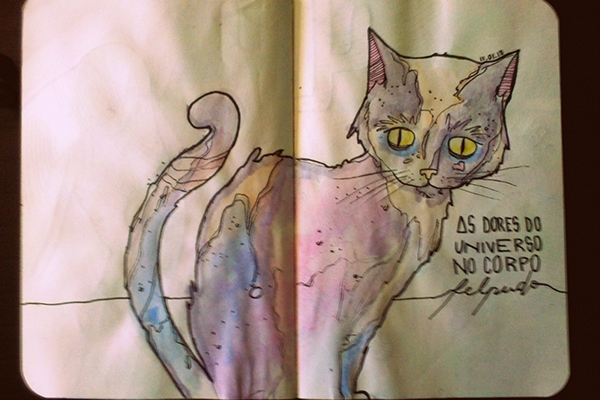 11.01.13
AS DORES DO
UNIVERSO
NO CORPO
felpudo